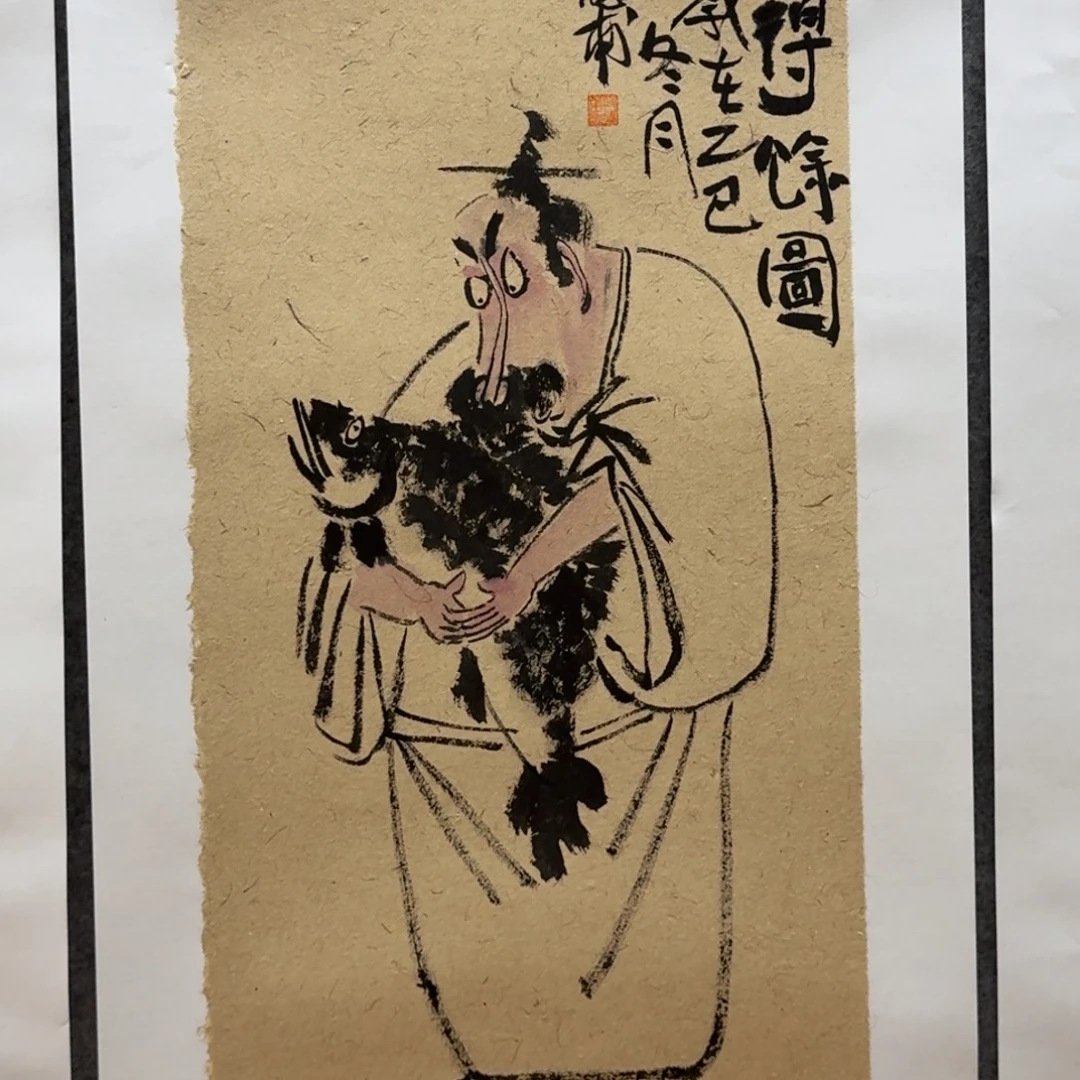 得餘圖
歲在乙巳
冬月